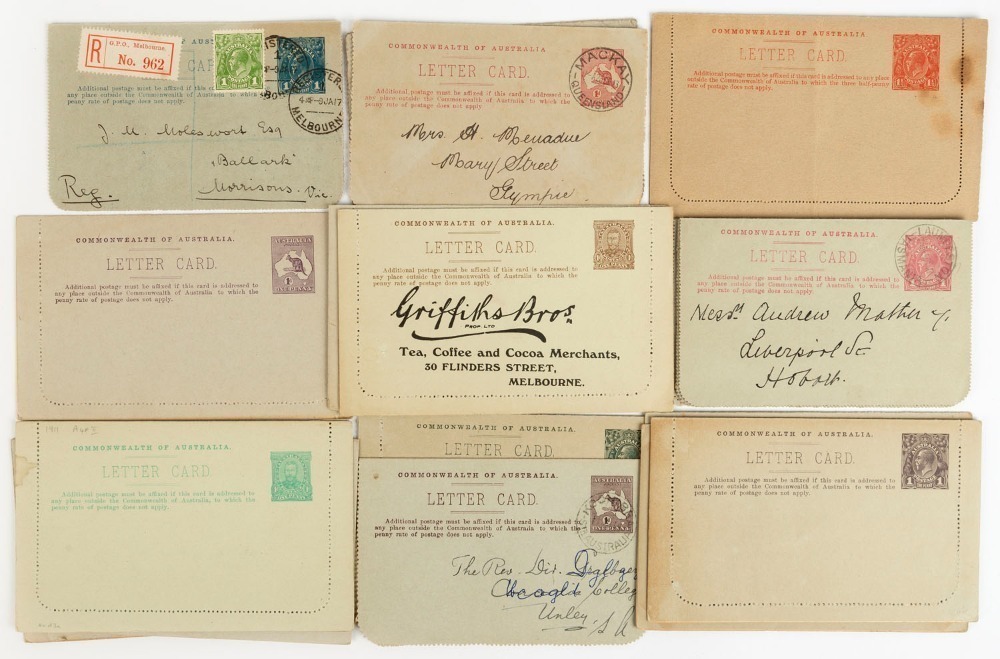 R
G.P.O., Melbourne.
No. 962
MELBOURNE
J. M. Molesworth Esq
"Ballark"
Morrisons. Vic
Reg.
COMMONWEALTH OF AUSTRALIA.
LETTER CARD.
Additional postage must be affixed if this card is addressed to
any place outside the Commonwealth of Australia or to which the
penny rate of postage does not apply.
MACKAY
QUEENSLAND
Mrs. A. Menadue
Mary Street
Gympie
COMMONWEALTH OF AUSTRALIA.
LETTER CARD.
Additional postage must be affixed if this card is addressed to
any place outside the Commonwealth of Australia or to which the three half-penny
rate of postage does not apply.
COMMONWEALTH OF AUSTRALIA.
LETTER CARD.
Additional postage must be affixed if this card is addressed to
any place outside the Commonwealth of Australia or to which the
penny rate of postage does not apply.
COMMONWEALTH OF AUSTRALIA.
LETTER CARD.
Additional postage must be affixed if this card is addressed to
any place outside the Commonwealth of Australia or to which the
penny rate of postage does not apply.
Griffiths Bros.
PROP. LTD
Tea, Coffee and Cocoa Merchants,
30 FLINDERS STREET,
MELBOURNE.
COMMONWEALTH OF AUSTRALIA.
LETTER CARD.
Additional postage must be affixed if this card is addressed to
any place outside the Commonwealth of Australia or to which the
penny rate of postage does not apply.
Messrs Andrew Mather &
Liverpool St
Hobart.
1911
COMMONWEALTH OF AUSTRALIA.
LETTER CARD.
Additional postage must be affixed if this card is addressed to
any place outside the Commonwealth of Australia or to which the
penny rate of postage does not apply.
COMMONWEALTH OF AUSTRALIA.
LETTER CARD.
COMMONWEALTH OF AUSTRALIA.
LETTER CARD.
Additional postage must be affixed if this card is addressed to
any place outside the Commonwealth of Australia or to which the
penny rate of postage does not apply.
The Rev. Dir.
College
Unley, S A
COMMONWEALTH OF AUSTRALIA.
LETTER CARD.
Additional postage must be affixed if this card is addressed to
any place outside the Commonwealth of Australia or to which the
penny rate of postage does not apply.